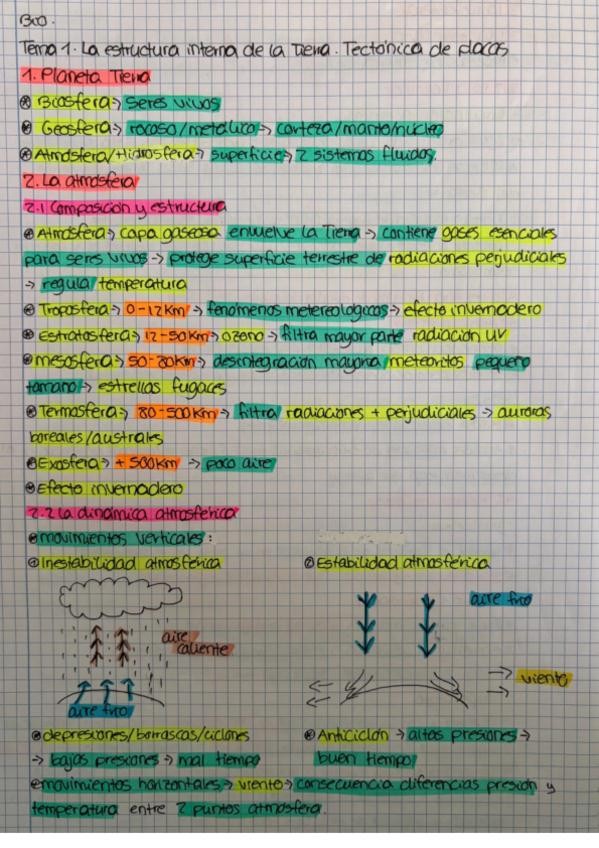 Bio.
Tema 1. La estructura interna de la Tierra. Tectónica de placas
1. Planeta Tierra
⊛ Biosfera → seres vivos
⊛ Geosfera → rocosa/metálica → corteza/manto/núcleo
⊛ Atmósfera/Hidrosfera → superficie → 2 sistemas fluidos.
2. La atmósfera
2.1 Composición y estructura
⊛ Atmósfera → capa gaseosa envuelve la Tierra → contiene gases esenciales
para seres vivos → protege superficie terrestre de radiaciones perjudiciales
→ regula temperatura
⊛ Troposfera → 0-12km → fenómenos metereológicos → efecto invernadero
⊛ Estratosfera → 12-50km → ozono → filtra mayor parte radiación UV
⊛ mesosfera → 50-80km → desintegración mayoría meteoritos pequeño
tamaño → estrellas fugaces
⊛ Termosfera → 80-500km → filtra radiaciones + perjudiciales → auroras
boreales/australes
⊛ Exosfera → +500km → poco aire
⊛ Efecto invernadero
2.2 la dinámica atmosférica
⊛ movimientos verticales:
⊛ Inestabilidad atmosférica
⊛ Estabilidad atmosférica
aire caliente
aire frío
aire frío
viento
⊛ depresiones/borrascas/ciclones
→ bajas presiones → mal tiempo
⊛ Anticiclón → altas presiones →
buen tiempo
⊛ movimientos horizontales → viento → consecuencia diferencias presión y
temperatura entre 2 puntos atmósfera.